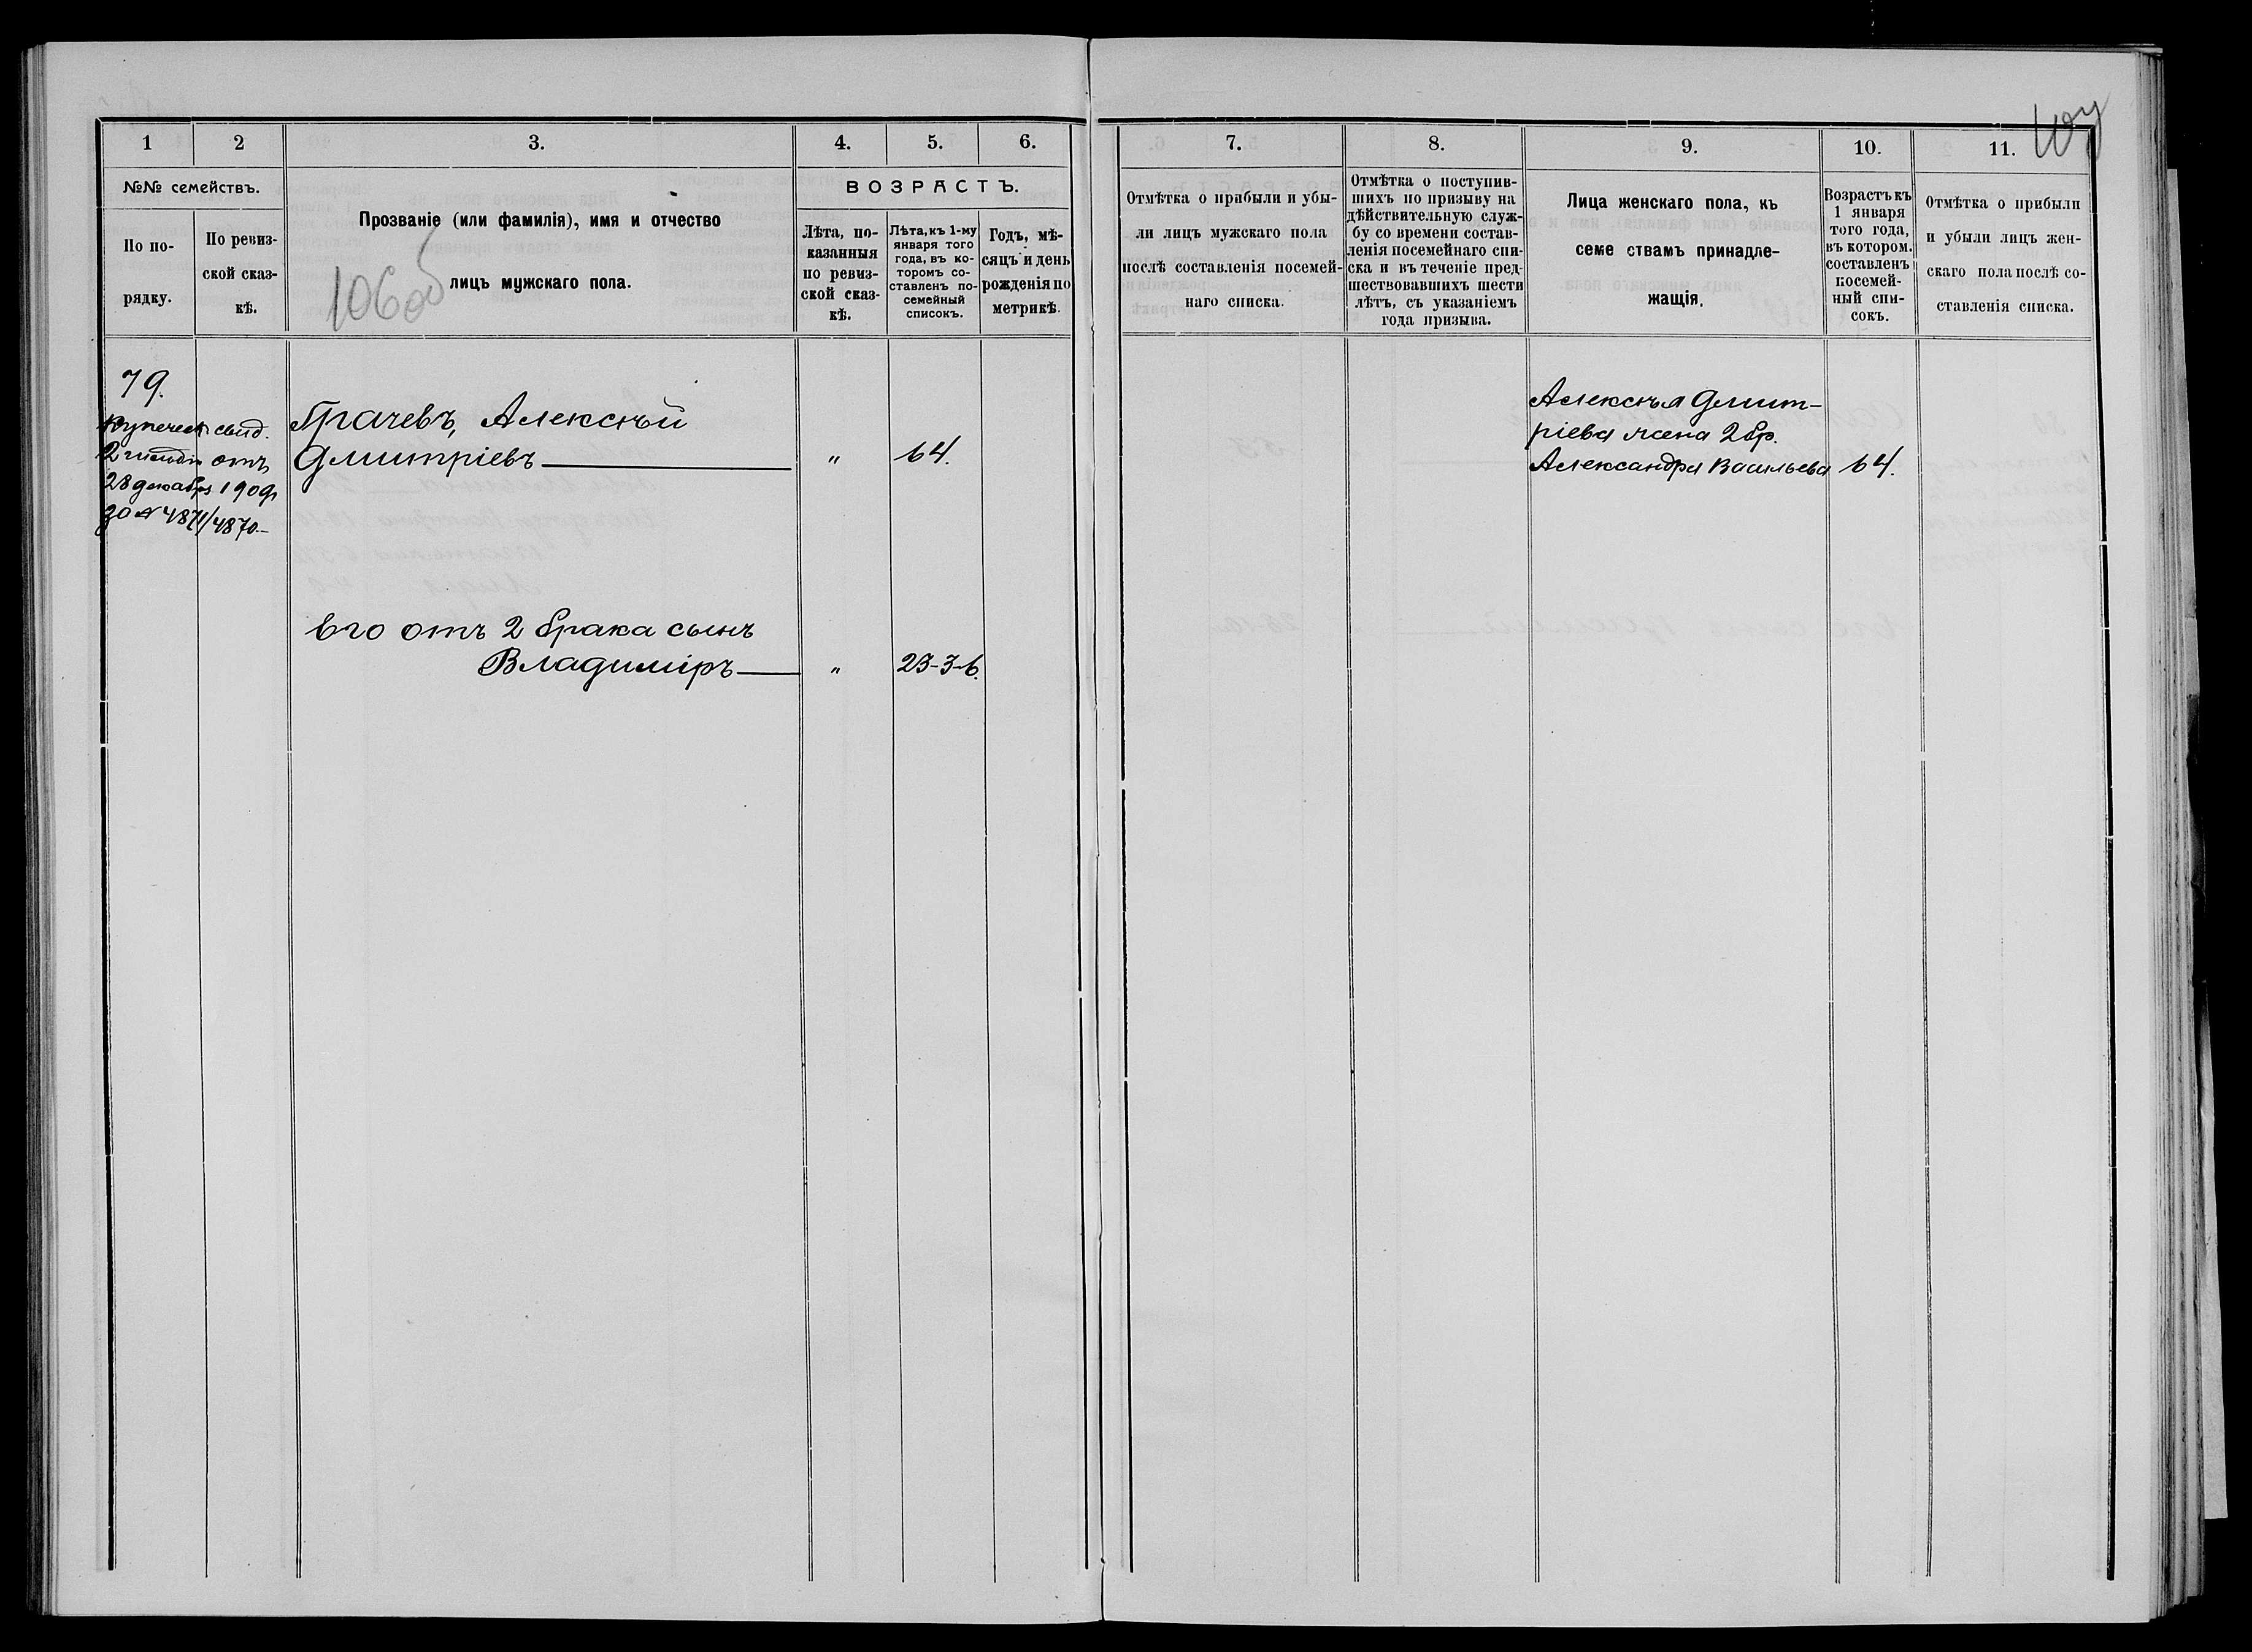 1
2
3.
4.
5.
6.
№№ семействъ.
По по-
рядку.
По ревиз-
ской сказ-
кѣ.
Прозваніе (или фамилія), имя и отчество
лицъ мужскаго пола.
106об
ВОЗРАСТЪ.
Лѣта, по-
казанныя
по ревиз-
ской сказ-
кѣ.
Лѣта, къ 1-му
января того
года, въ ко-
торомъ со-
ставленъ по-
семейный
списокъ.
Годъ, мѣ-
сяцъ и день
рожденія по
метрикѣ.
79.
купечест. свид.
2 гильдіи отъ
28 декабря 190
за № 4871/4870.-
Грачевъ, Алексѣй
Дмитріевъ " 64.
Его отъ 2 брака сынъ
Владиміръ " 23-3-6.
7.
8.
9.
10.
11.
Отмѣтка о прибыли и убы-
ли лицъ мужскаго пола
послѣ составленія посемей-
наго списка.
Отмѣтка о поступив-
шихъ по призыву на
дѣйствительную служ-
бу со времени состав-
ленія посемейнаго спи-
ска и въ теченіе пред-
шествовавшихъ шести
лѣтъ, съ указаніемъ
года призыва.
Лица женскаго пола, къ
семе ствамъ принадле-
жащія.
Возрастъ къ
1 января
того года,
въ котором.
составленъ
посемей-
ный спи-
сокъ.
Отмѣтка о прибыли
и убыли лицъ жен-
скаго пола послѣ со-
ставленія списка.
Алексѣя Дмит-
ріева жена 2 бр.
Александра Васильева 64.